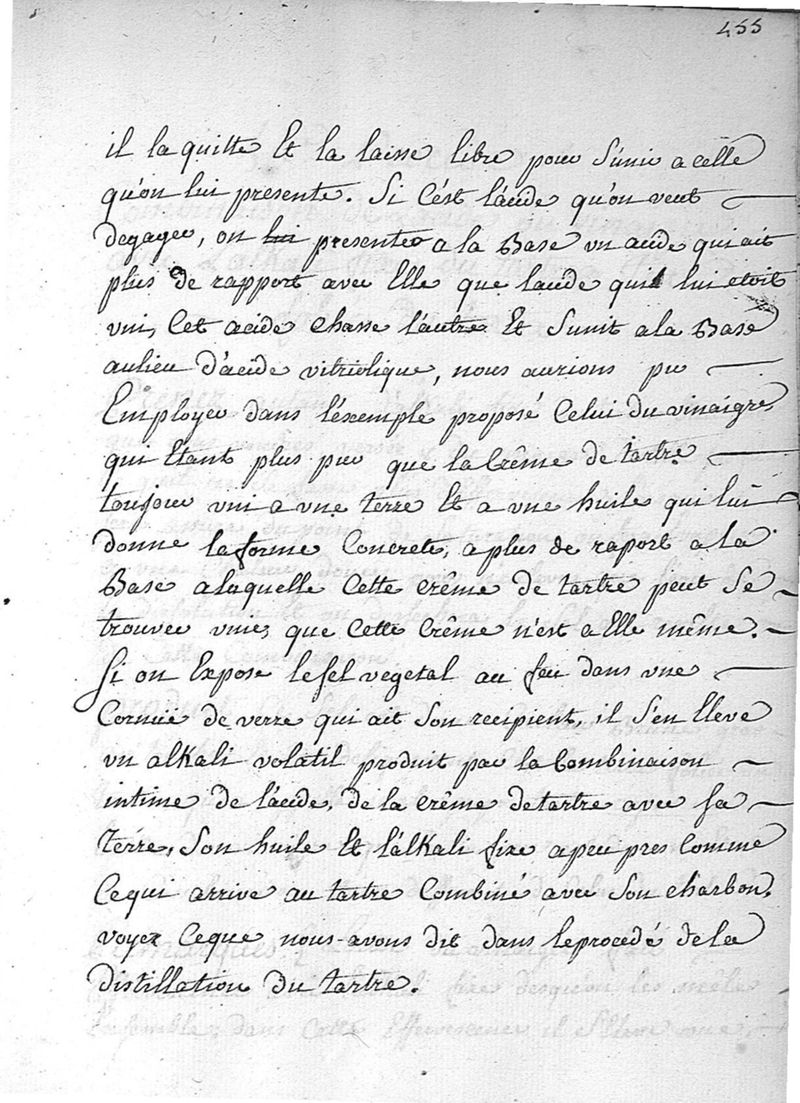 455
il la quitte Et la laisse libre pour S'unir a celle
qu'on lui presente. Si C'est l'acide qu'on veut
degager, on lui presente a la Base un acide qui ait
plus de rapport avec Elle que l'acide qui lui etoit
uni, Cet acide Chasse l'autre Et S'unit a la Base
aulieu d'acide vitriolique, nous aurions pu
Employer dans l'éxemple proposé Celui du vinaigre,
qui Etant plus pur que la Crême de tartre
toujour uni a une terre Et a une huile qui lui
donne la forme Concrete, a plus de raport a la
Base a laquelle Cette crême de tartre peut Se
trouver unie, que Cette Crême n'est a Elle même.
Si on Expose le sel vegetal au feu dans une
Cornüe de verre qui ait Son recipient, il S'en Eleve
un alKali volatil produit par la Combinaison
intime de l'acide, de la crême de tartre avec sa
terre, Son huile Et l'alKali fixe a peu pres Comme
Cequi arrive au tartre Combiné avec Son charbon.
voyez Ceque nous avons dit dans le procedé de la
distillation du tartre.